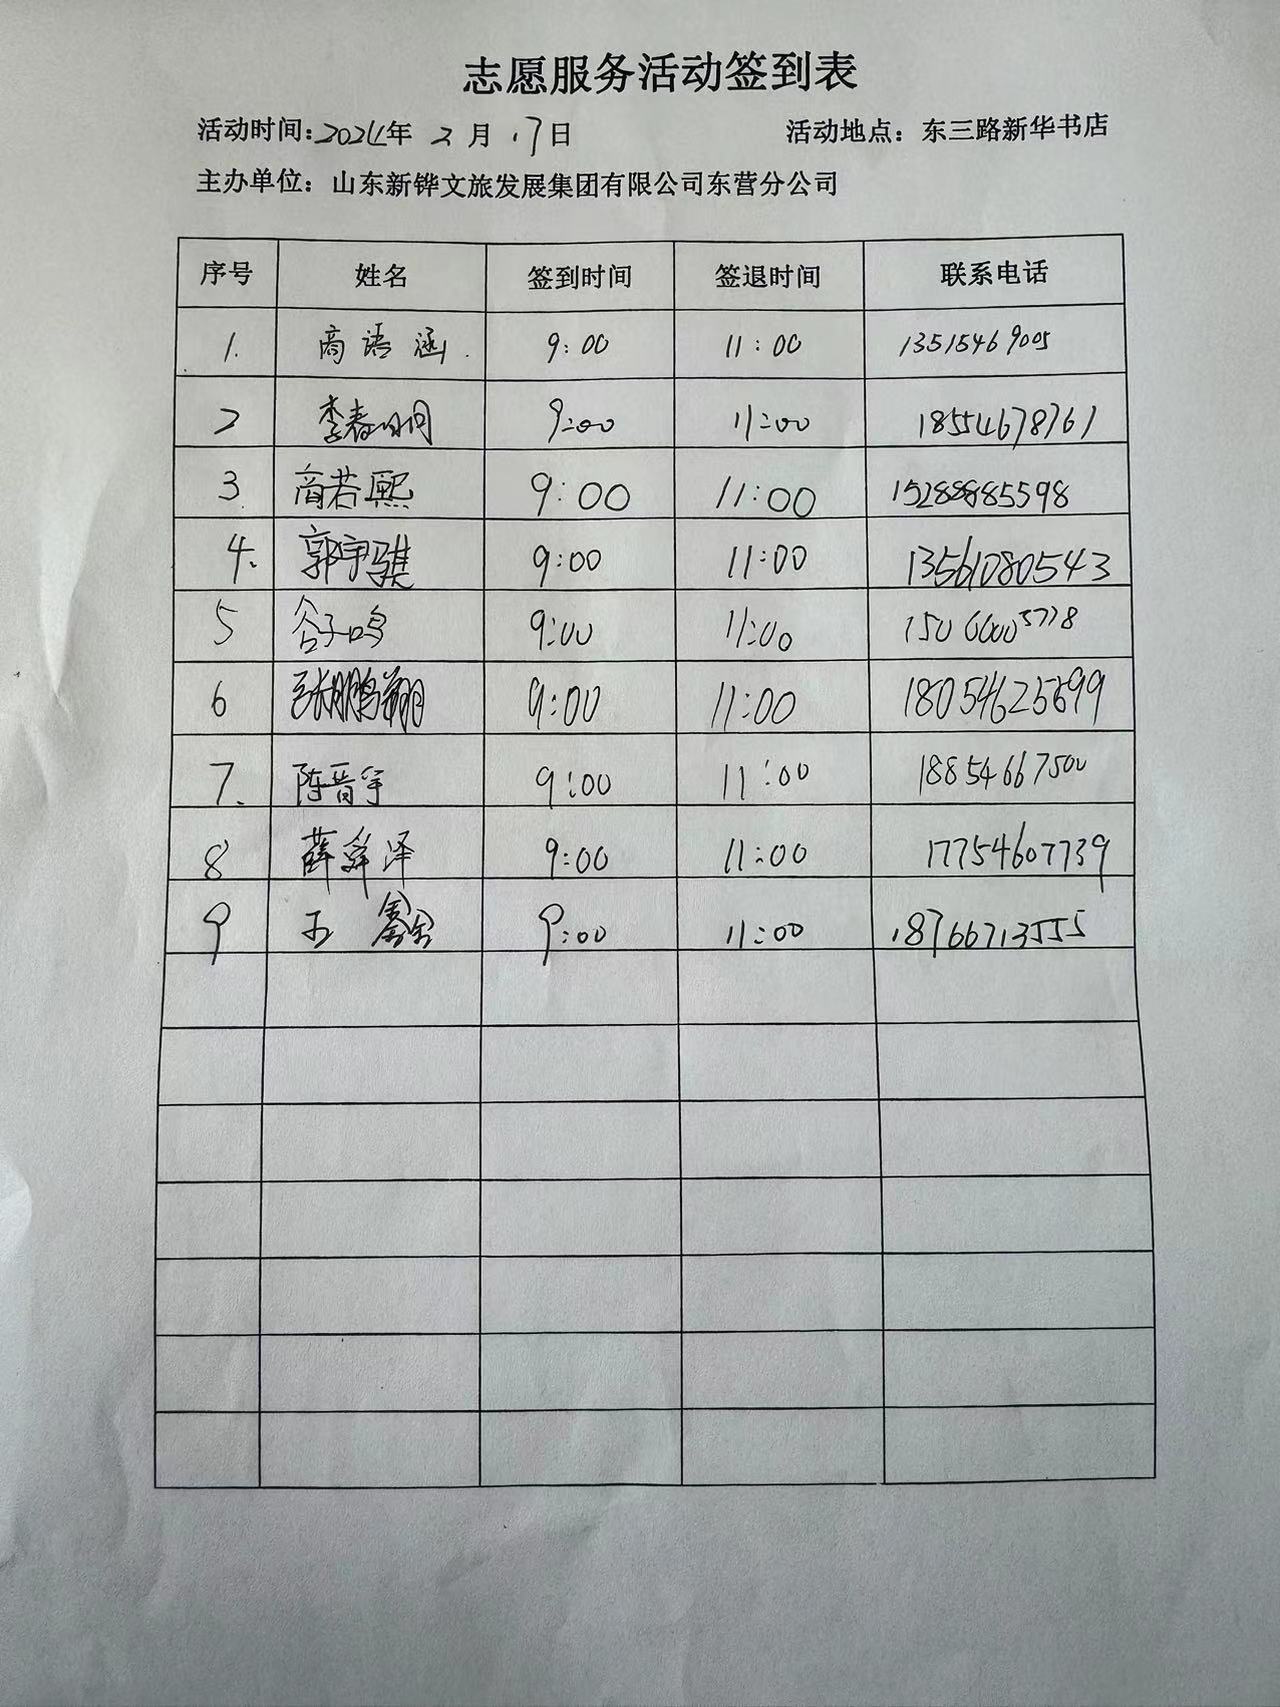 志愿服务活动签到表
活动时间：2024年 2月 17日 活动地点：东三路新华书店
主办单位：山东新铧文旅发展集团有限公司东营分公司
序号 姓名 签到时间 签退时间 联系电话
1. 商语涵. 9:00 11:00 13515469005
2 李春 9:00 11:00 18554678761
3. 商若熙 9:00 11:00 15288885598
4. 郭宇骐 9:00 11:00 13561080543
5 谷子鸣 9:00 11:00
6 张鹏翔 9:00 11:00
7. 陈晋宇 9:00 11:00 18854667500
8 薛舜泽 9:00 11:00 17754607739
9 王鑫 9:00 11:00 18766713555